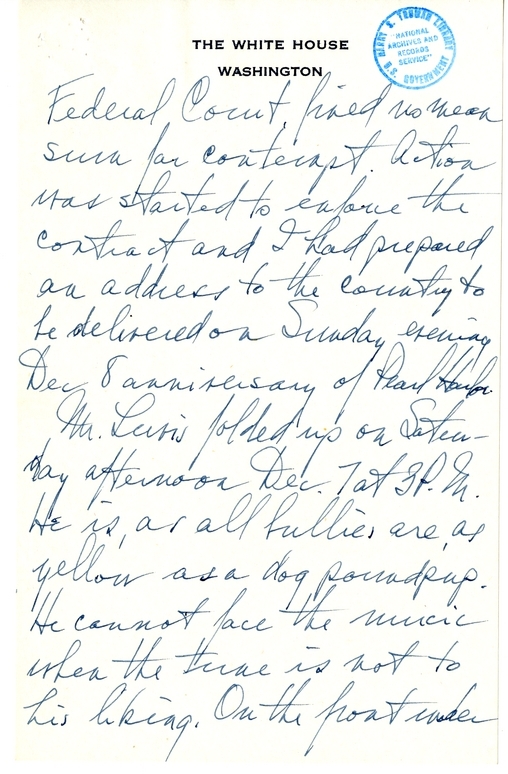 THE WHITE HOUSE
WASHINGTON
HARRY S. TRUMAN LIBRARY
"NATIONAL
ARCHIVES AND
RECORDS
SERVICE"
U.S. GOVERNMENT
Federal Court, fined no mean
sum for contempt. Action
was started to enforce the
contract and I had prepared
an address to the country to
be delivered on Sunday evening
Dec 8 anniversary of Pearl Harbor.
Mr. Lewis folded up on Satur-
day afternoon Dec. 7 at 3 P.M.
He is, as all bullies are, as
yellow as a dog pound pup.
He cannot face the music
when the tune is not to
his liking. On the front under